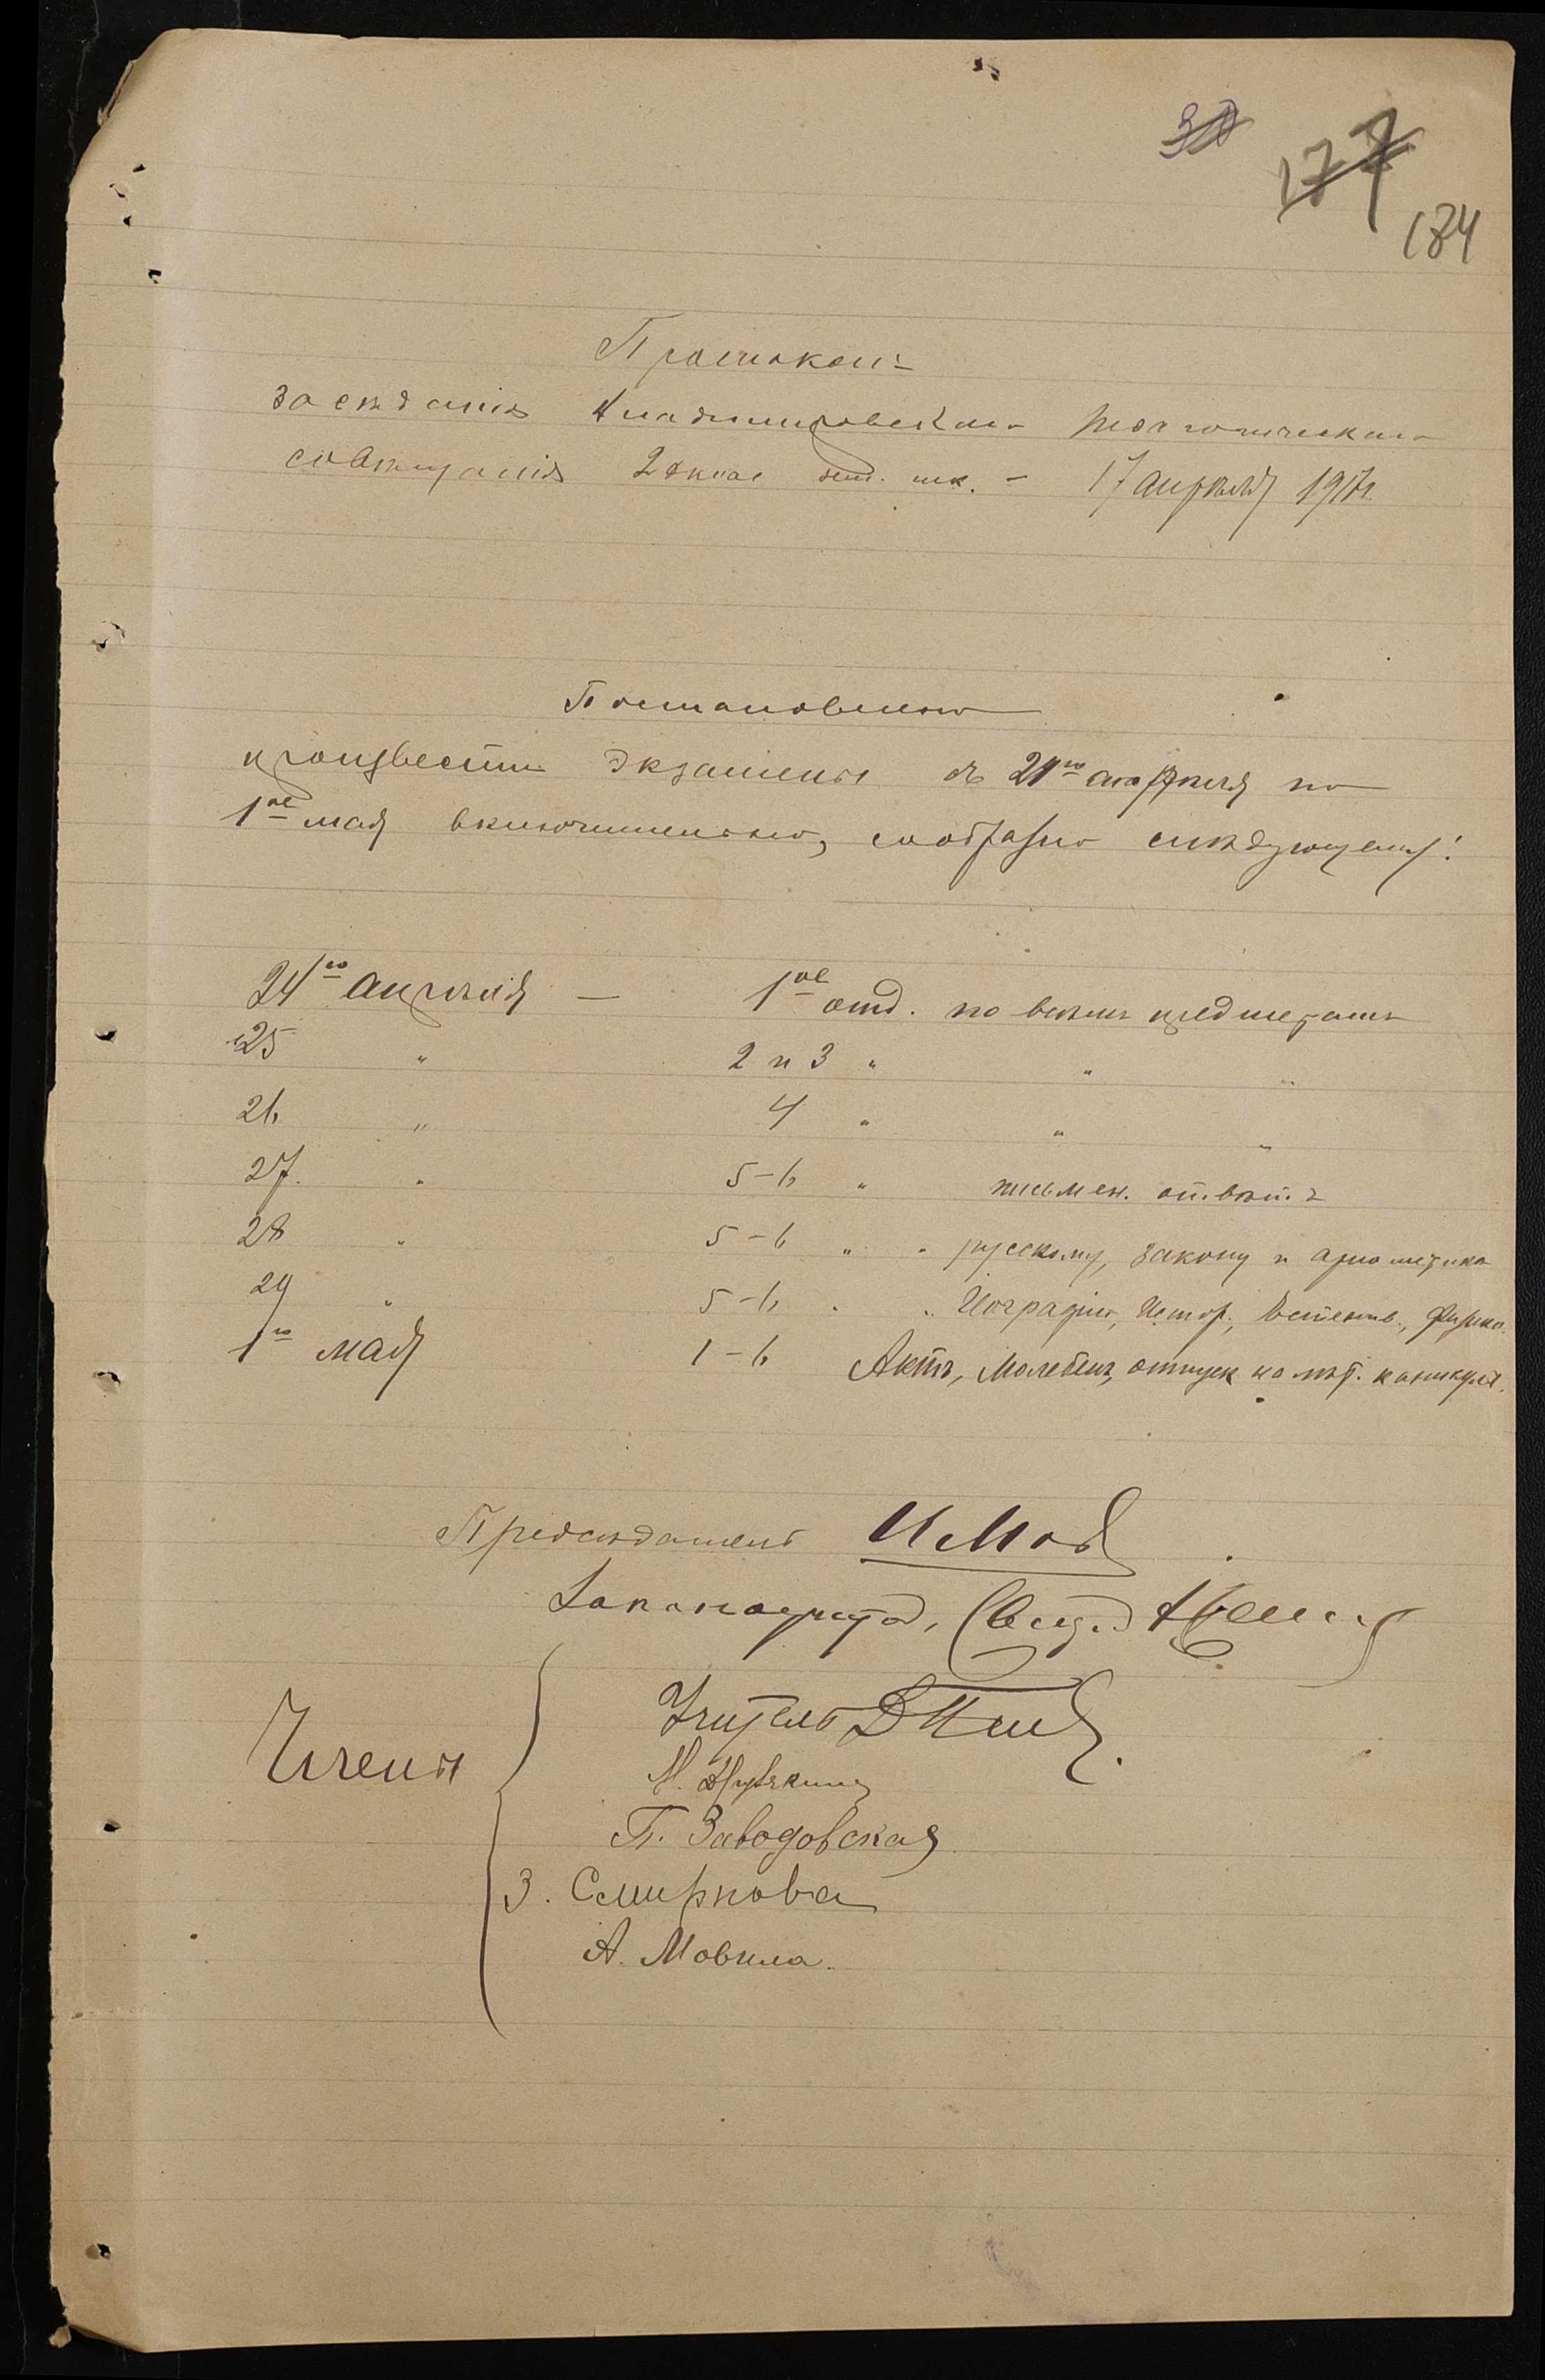 30
177
184
Протоколъ
засѣданія Владимировскаго педагогическаго
совѣщанія 2хклас зем. шк. – 17 апрѣля 1917г.
Постановлено
произвести экзамены съ 24го апрѣля по
1ое мая включительно, сообразно слѣдующему:
24го апрѣля — 1ое отд. по всѣмъ предметамъ
25 " 2 и 3 " " "
26 " 4 " " "
27. " 5–6 " письмен. отвѣтъ
28 " 5–6 " " русскому, закону и ариѳметика
29 " 5–6 " " Географія, Истор., Естеств., Физика.
1го мая 1–6 Актъ, Молебенъ, отпуск на лѣт. каникулы.
Предсѣдатель
Законоучитель, Свящ.
Члены
Учитель Д
М.
П. Заводовская
З. Смирнова
А. Мовила.